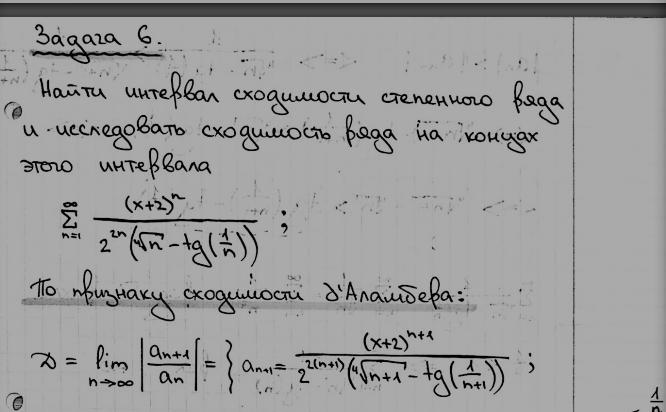 Задача 6.
Найти интервал сходимости степенного ряда
и исследовать сходимость ряда на концах
этого интервала
∑_{n=1}^{∞} (x+2)^n / (2^{2n} (∜n - tg(1/n))) ;
По признаку сходимости д'Аламбера:
D = lim_{n→∞} |a_{n+1}/a_n| = { a_{n+1} = (x+2)^{n+1} / (2^{2(n+1)} (∜(n+1) - tg(1/(n+1)))) ;